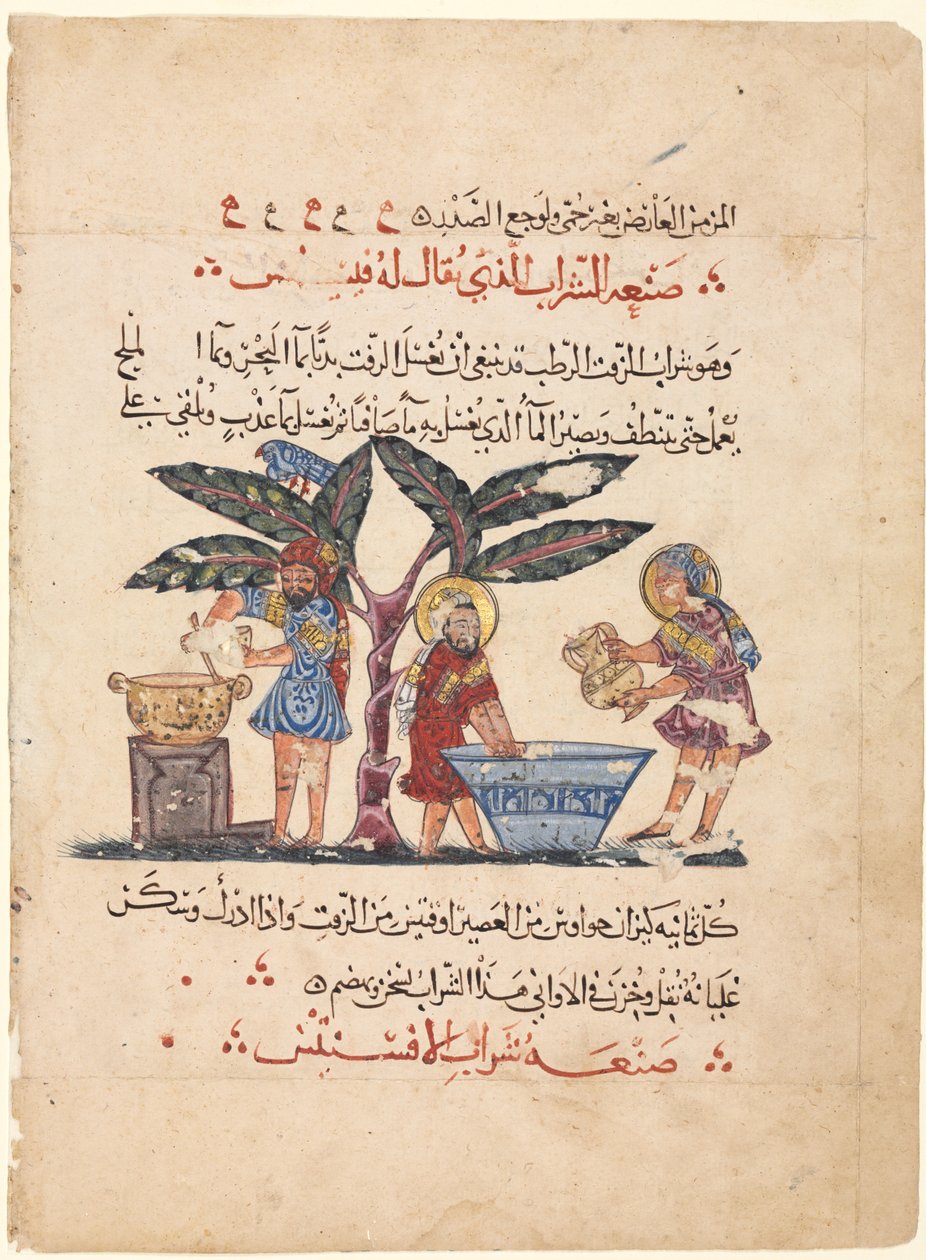 المزمن العارض بغير حمى ولوجع الضدد ه ح ح ح ح ح
صنعه الشراب الذي يقال له
وهو شراب الزفت الرطب قد ينبغي ان يغسل الزفت بديا بما البحر وبما الملح
يعمل حتى يتنظف ويصير الماء الذي يغسل به ماً صافياً ثم يغسل بما عذب ويلقى على
كل ثمانيه كيزان حواوس من العصير اوقتين من الزفت واذا ادرك وسكن
غليانه نقل وخزن في الاواني هذا الشراب يسخن ويهضم ه
صنعه شراب الافسنتين